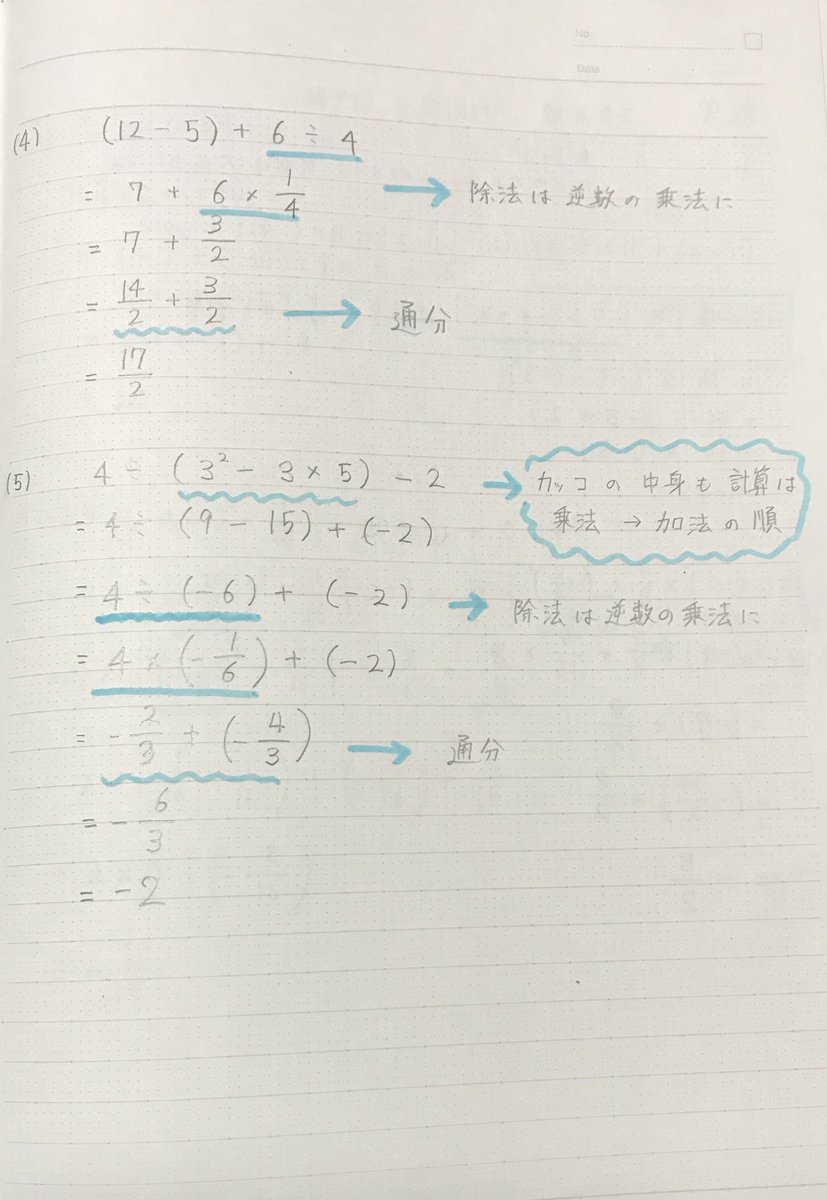 No.
Date
(4) (12 - 5) + 6 ÷ 4
= 7 + 6 × 1/4 → 除法は逆数の乗法に
= 7 + 3/2
= 14/2 + 3/2 → 通分
= 17/2
(5) 4 ÷ (3² - 3 × 5) - 2 → カッコの中身も計算は
乗法 → 加法の順
= 4 ÷ (9 - 15) + (-2)
= 4 ÷ (-6) + (-2) → 除法は逆数の乗法に
= 4 × (-1/6) + (-2)
= -2/3 + (-4/3) → 通分
= -6/3
= -2